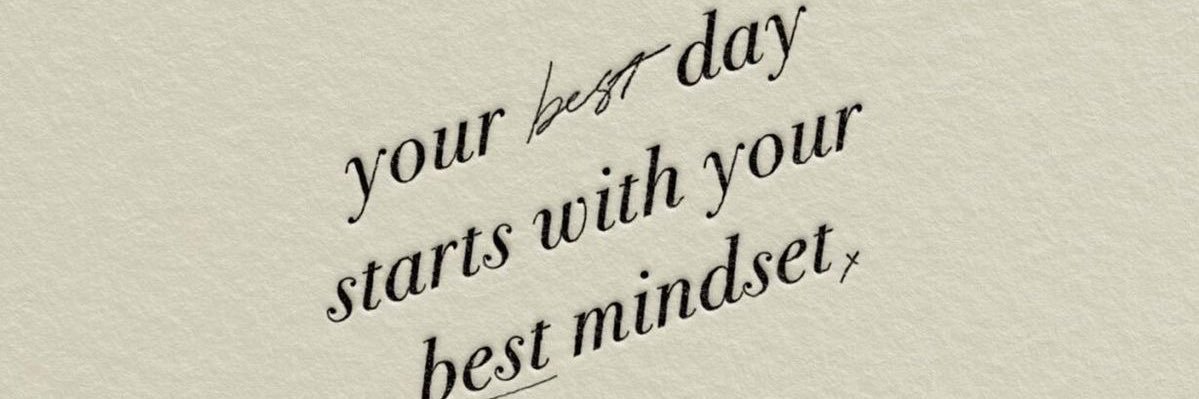 your best day
starts with your
best mindset,x